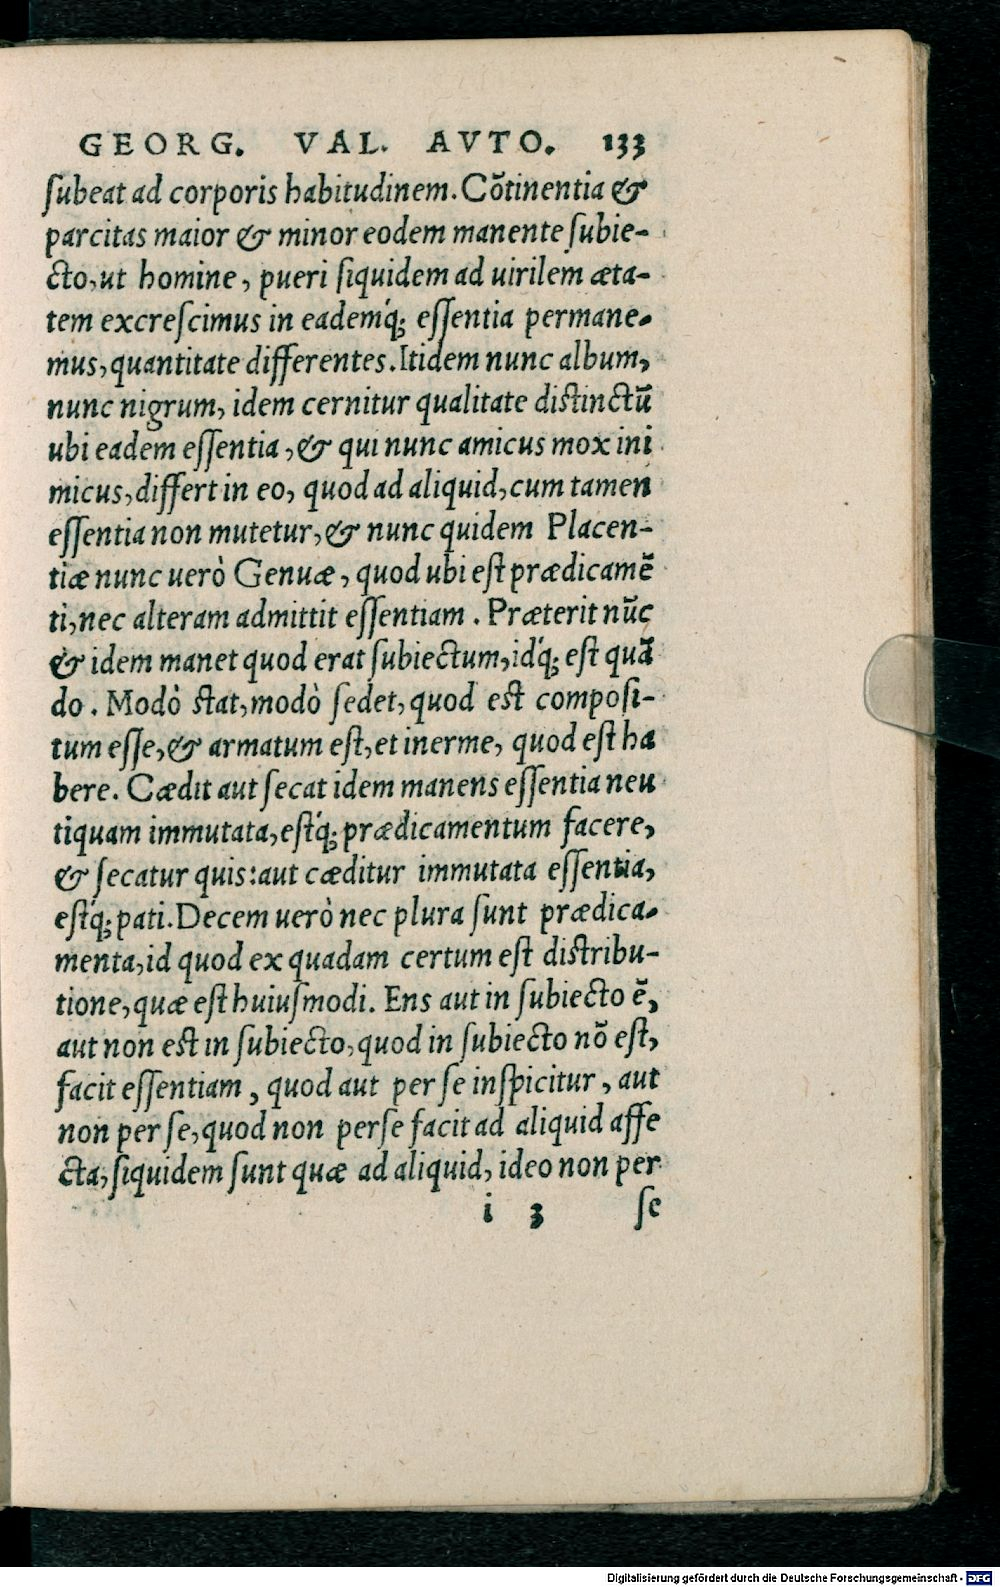 GEORG. VAL. AVTO. 133
ſubeat ad corporis habitudinem. Cõtinentia &
parcitas maior & minor eodem manente ſubie-
cto, ut homine, pueri ſiquidem ad uirilem æta-
tem excreſcimus in eademq́; eſſentia permane-
mus, quantitate differentes. Itidem nunc album,
nunc nigrum, idem cernitur qualitate distinctũ
ubi eadem eſſentia, & qui nunc amicus mox ini
micus, differt in eo, quod ad aliquid, cum tamen
eſſentia non mutetur, & nunc quidem Placen-
tiæ nunc uerò Genuæ, quod ubi eſt prædicamẽ
ti, nec alteram admittit eſſentiam. Præterit nũc
& idem manet quod erat ſubiectum, idq́; eſt quã
do. Modò stat, modò ſedet, quod est compoſi-
tum eſſe, & armatum eſt, et inerme, quod eſt ha
bere. Cædit aut ſecat idem manens eſſentia neu
tiquam immutata, eſtq́; prædicamentum facere,
& ſecatur quis: aut cæditur immutata eſſentia,
eſtq́; pati. Decem uerò nec plura ſunt prædica-
menta, id quod ex quadam certum eſt distribu-
tione, quæ eſt huiuſmodi. Ens aut in ſubiecto ẽ,
aut non est in ſubiecto, quod in ſubiecto nõ eſt,
facit eſſentiam, quod aut per ſe inſpicitur, aut
non per ſe, quod non perſe facit ad aliquid affe
cta, ſiquidem ſunt quæ ad aliquid, ideo non per
i 3 ſe
Digitalisierung gefördert durch die Deutsche Forschungsgemeinschaft - DFG